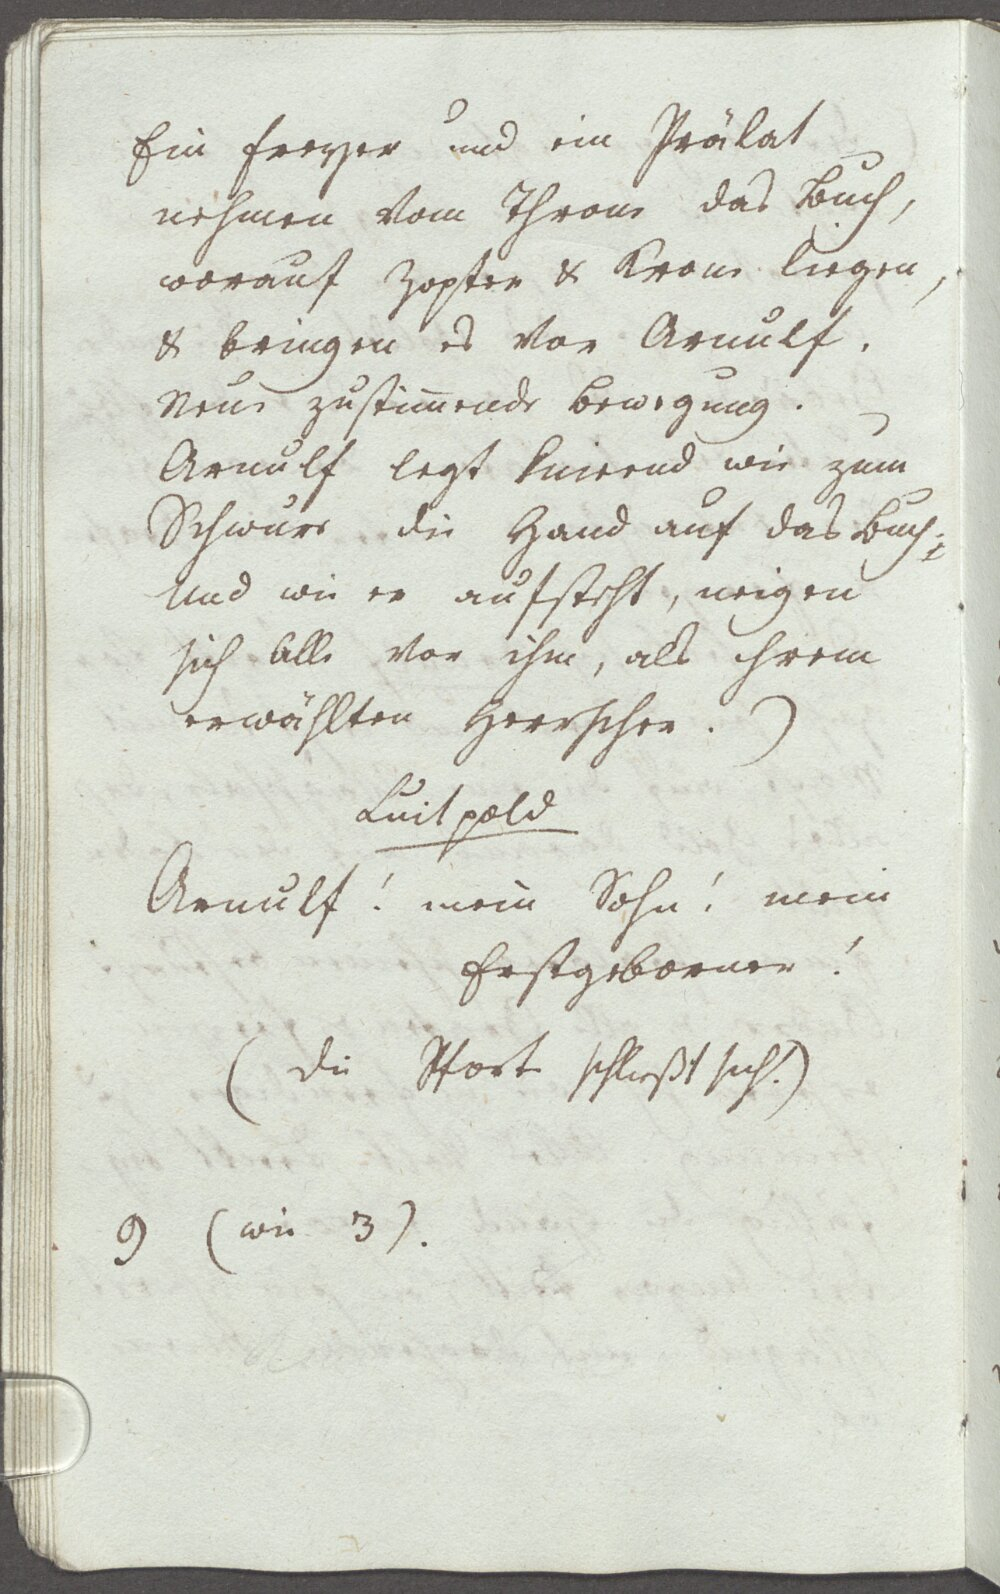 Ein Freyer und ein Prälat
nehmen vom Throne das Buch,
worauf Zepter & Krone liegen,
& bringen es vor Arnulf.
Neue zustim̅ende Bewegung.
Arnulf legt knieend wie zum
Schwure die Hand auf das Buch;
und wie er aufsteht, neigen
sich Alle vor ihm, als ihrem
erwählten Herrscher.)
Luitpold
Arnulf! mein Sohn! mein
Erstgeborner!
(die Pforte schließt sich.)
9 (wie 3).